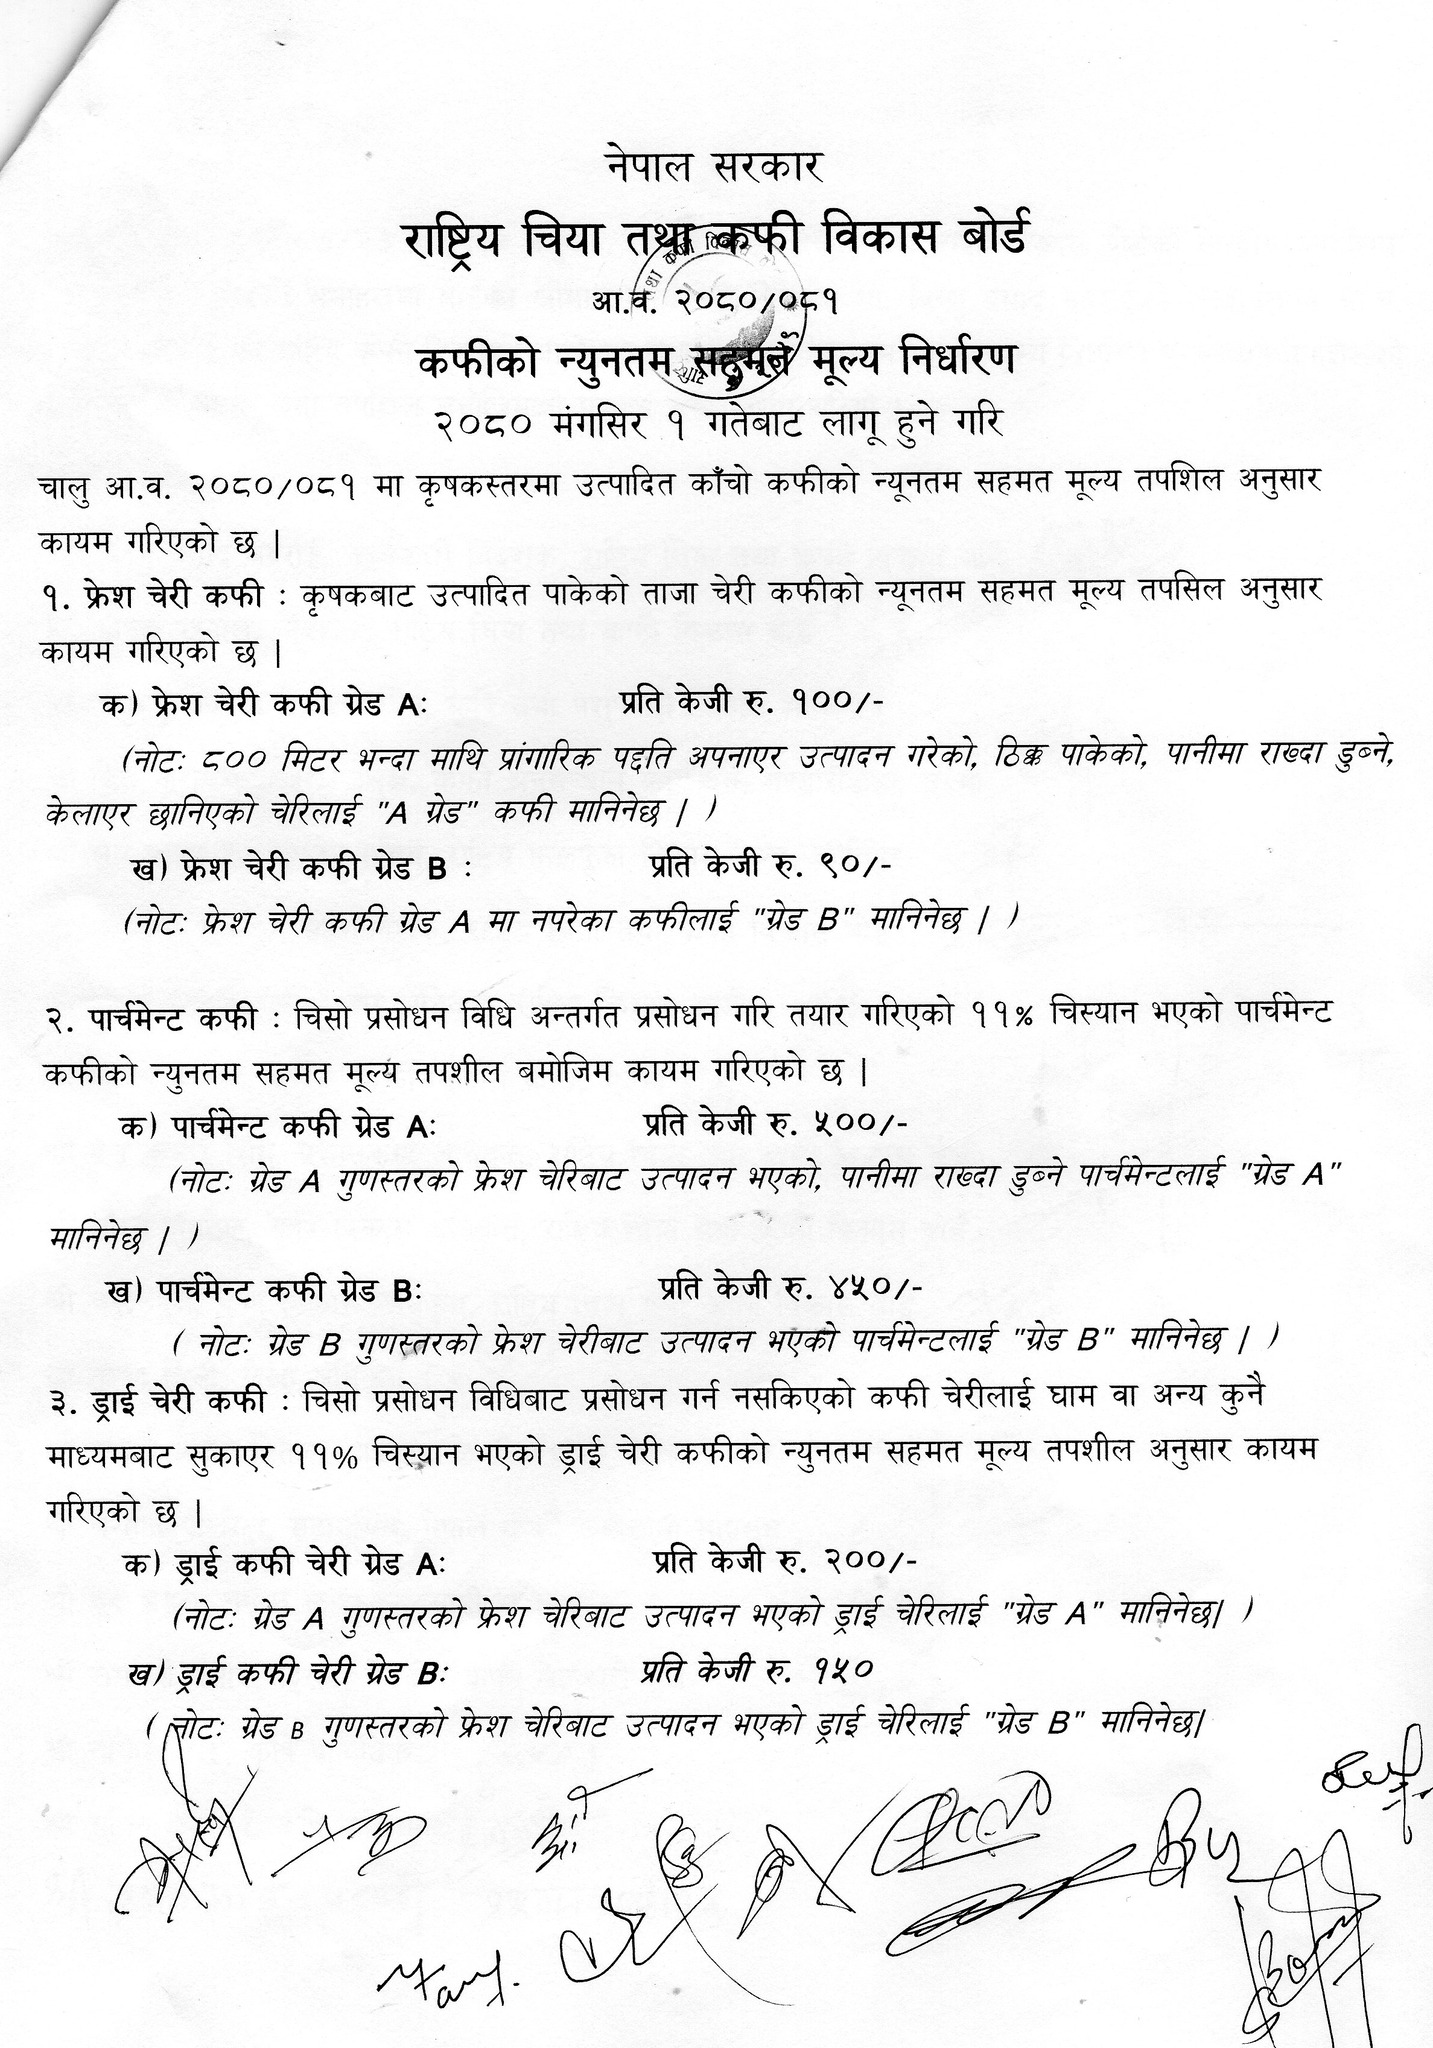 नेपाल सरकार
राष्ट्रिय चिया तथा कफी विकास बोर्ड
आ.व. २०८०/०८१
कफीको न्युनतम सहमत मूल्य निर्धारण
२०८० मंगसिर १ गतेबाट लागू हुने गरि
चालु आ.व. २०८०/०८१ मा कृषकस्तरमा उत्पादित काँचो कफीको न्यूनतम सहमत मूल्य तपशिल अनुसार
कायम गरिएको छ |
१. फ्रेश चेरी कफी : कृषकबाट उत्पादित पाकेको ताजा चेरी कफीको न्यूनतम सहमत मूल्य तपसिल अनुसार
कायम गरिएको छ |
क) फ्रेश चेरी कफी ग्रेड A: प्रति केजी रु. १००/-
(नोट: ८०० मिटर भन्दा माथि प्रांगारिक पद्दति अपनाएर उत्पादन गरेको, ठिक्क पाकेको, पानीमा राख्दा डुब्ने,
केलाएर छानिएको चेरिलाई "A ग्रेड" कफी मानिनेछ | )
ख) फ्रेश चेरी कफी ग्रेड B : प्रति केजी रु. ९०/-
(नोट: फ्रेश चेरी कफी ग्रेड A मा नपरेका कफीलाई "ग्रेड B" मानिनेछ | )
२. पार्चमेन्ट कफी : चिसो प्रसोधन विधि अन्तर्गत प्रसोधन गरि तयार गरिएको ११% चिस्यान भएको पार्चमेन्ट
कफीको न्युनतम सहमत मूल्य तपशील बमोजिम कायम गरिएको छ |
क) पार्चमेन्ट कफी ग्रेड A: प्रति केजी रु. ५००/-
(नोट: ग्रेड A गुणस्तरको फ्रेश चेरिबाट उत्पादन भएको, पानीमा राख्दा डुब्ने पार्चमेन्टलाई "ग्रेड A"
मानिनेछ | )
ख) पार्चमेन्ट कफी ग्रेड B: प्रति केजी रु. ४५०/-
( नोट: ग्रेड B गुणस्तरको फ्रेश चेरीबाट उत्पादन भएको पार्चमेन्टलाई "ग्रेड B" मानिनेछ | )
३. ड्राई चेरी कफी : चिसो प्रसोधन विधिबाट प्रसोधन गर्न नसकिएको कफी चेरीलाई घाम वा अन्य कुनै
माध्यमबाट सुकाएर ११% चिस्यान भएको ड्राई चेरी कफीको न्युनतम सहमत मूल्य तपशील अनुसार कायम
गरिएको छ |
क) ड्राई कफी चेरी ग्रेड A: प्रति केजी रु. २००/-
(नोट: ग्रेड A गुणस्तरको फ्रेश चेरिबाट उत्पादन भएको ड्राई चेरिलाई "ग्रेड A" मानिनेछ| )
ख) ड्राई कफी चेरी ग्रेड B: प्रति केजी रु. १५०
( नोट: ग्रेड B गुणस्तरको फ्रेश चेरिबाट उत्पादन भएको ड्राई चेरिलाई "ग्रेड B" मानिनेछ|